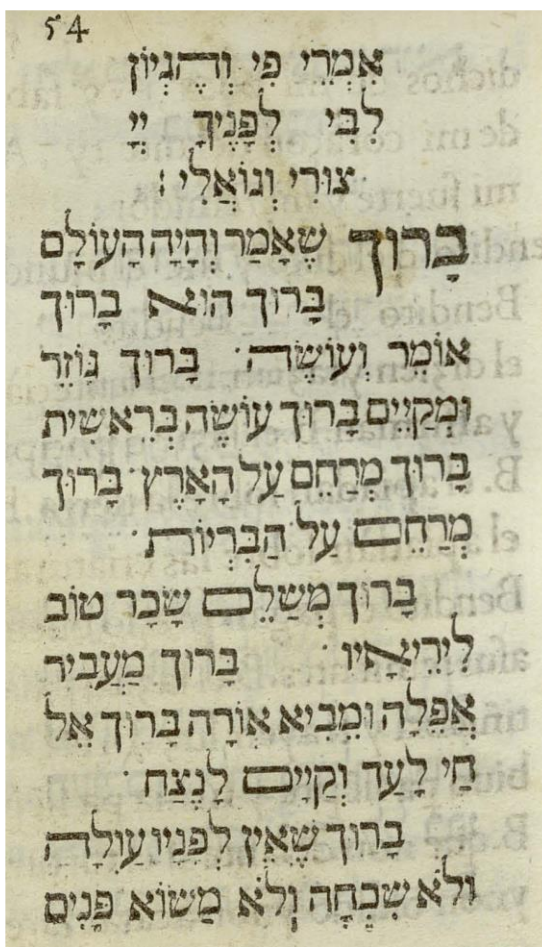 54
אִמְרֵי פִי וְהֶגְיוֹן
לִבִּי לְפָנֶיךָ יְיָ
צוּרִי וְגוֹאֲלִי :
בָּרוּךְ שֶׁאָמַר וְהָיָה הָעוֹלָם
בָּרוּךְ הוּא בָּרוּךְ
אוֹמֵר וְעוֹשֶׂה · בָּרוּךְ גּוֹזֵר
וּמְקַיֵּים בָּרוּךְ עוֹשֶׂה בְרֵאשִׁית
בָּרוּךְ מְרַחֵם עַל הָאָרֶץ · בָּרוּךְ
מְרַחֵם עַל הַבְּרִיּוֹת ·
בָּרוּךְ מְשַׁלֵּם שָׂכָר טוֹב
לִירֵיאָיו · בָּרוּךְ מַעֲבִיר
אֲפֵלָה וּמֵבִיא אוֹרָה בָּרוּךְ אֵל
חַי לָעַד וְקַיָּים לָנֶצַח ·
בָּרוּךְ שֶׁאֵין לְפָנָיו עַוְלָה
וְלֹא שִׁכְחָה וְלֹא מַשּׂוֹא פָּנִים